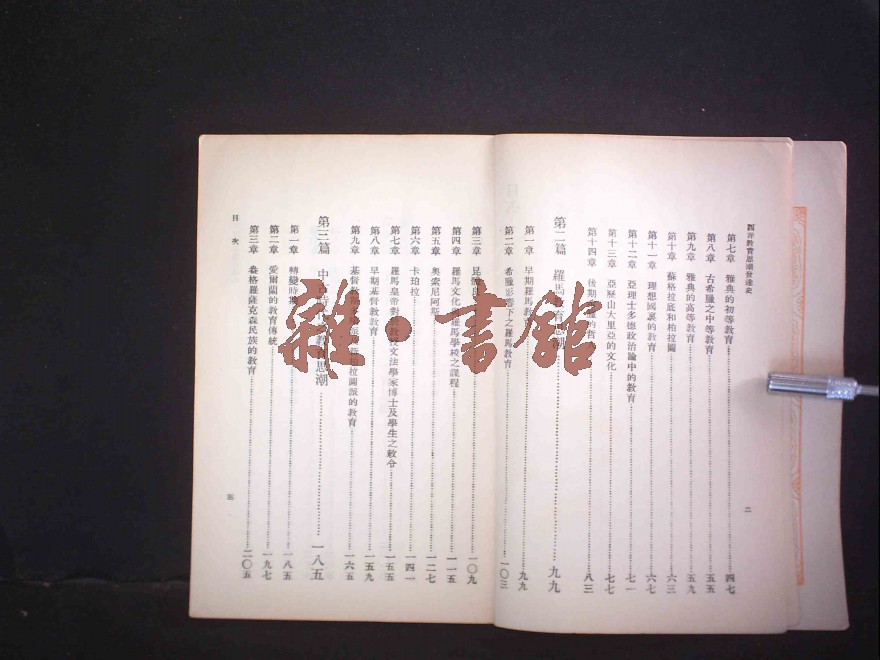 西洋教育思潮發達史
第七章 雅典的初等教育 四七
第八章 古希臘之中等教育 五五
第九章 雅典的高等教育 五九
第十章 蘇格拉底和柏拉圖 六三
第十一章 理想國裏的教育 六七
第十二章 亞理士多德政治論中的教育 七一
第十三章 亞歷山大里亞的文化 七七
第十四章 後期希臘的哲 八三
第二篇 羅馬教育思潮 九九
第一章 早期羅馬教 九九
第二章 希臘影響下之羅馬教育 一〇三
二
第三章 一〇九
第四章 羅馬文化 羅馬學校之課程 一一五
第五章 奧索尼阿斯 一二七
第六章 卡珀拉 一四一
第七章 羅馬皇帝對 文法學家博士及學生之敕令 一五五
第八章 早期基督教教育 一五九
第九章 基督教 柏拉圖派的教育 一六五
第三篇 中 教育思潮 一八五
第一章 轉變時期 一八五
第二章 愛爾蘭的教育傳統 一九七
第三章 盎格羅薩克森民族的教育 二〇五
目次
雜·書館